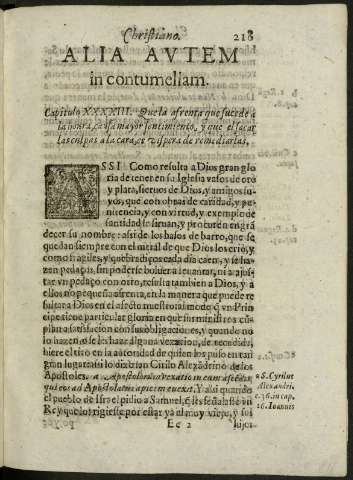 Christiano. 218
ALIA AVTEM
in contumeliam.
Capitulo XXXXIII. Que la afrenta que sucede a
la honra, causa mayor sentimiento, y que el sacar
las culpas a la cara, es vispera de remediarlas.
ASSI Como resulta a Dios gran glo
ria de tener en su Iglesia vasos de oro
y plata, sieruos de Dios, y amigos su-
yos, que con obras de caridad, y pe-
nitencia, y con virtud, y exemplo de
santidad le siruan, y procuren engrã
decer su nombre: assi de los basos de barro, que se
quedan siempre con el metal de que Dios los crio, y
como fragiles, y quebradizos cada dia caen, y se ha-
zen pedaços, sin poderse boluer a leuantar, ni a ajus-
tar vn pedaço con otro, resulta tambien a Dios, y a
ellos no pequeña afrenta, en la manera que puede re
sultar a Dios en el afecto nuestro: al modo q̃ vn Prin
cipe tiene particular gloria en que sus ministros cũ-
plan a satisfacion con sus obligaciones, y quando no
lo hazen, o se les haze alguna vexacion, de recudida
hiere el tiro en la autoridad de quien los puso en tan
gran lugar: assi lo dixo san Cirilo Alexãdrino de los
Apostoles. a Apostolorum vexatio in eum
qui eos ad Apostolatus apicem euexit. Y assi quando
el pueblo de Israel pidio a Samuel, q̃ les señalasse vn
Rey que los rigiesse por estar ya el muy viejo, y sus
a S. Cyrilus
Alexandri.
c. 36. in cap.
16. Ioannis
Ee 2 hijos